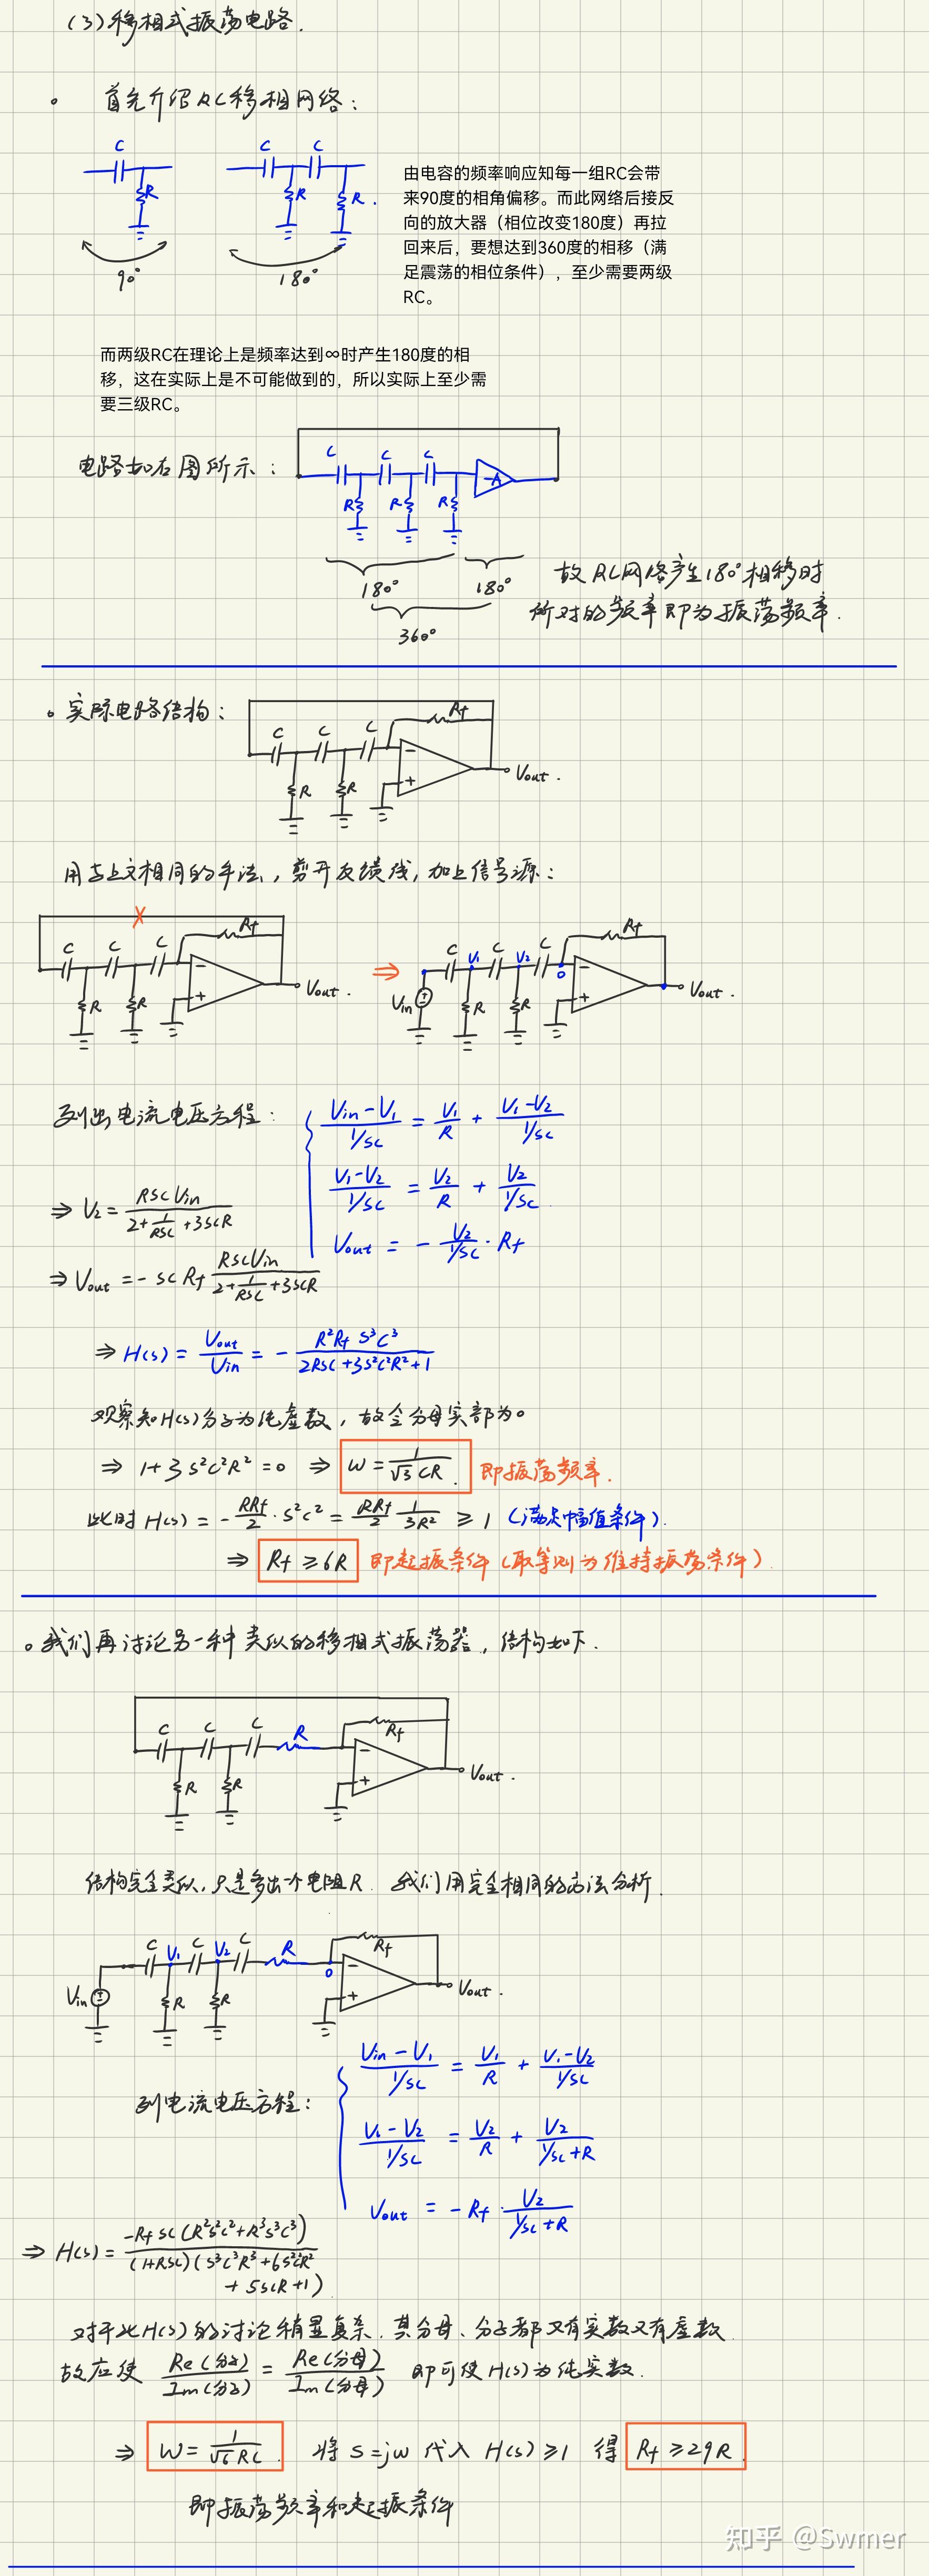 (3)移相式振荡电路.
。 首先介绍RC移相网络:
C C C
R R R.
90° 180°
由电容的频率响应知每一组RC会带
来90度的相角偏移。而此网络后接反
向的放大器（相位改变180度）再拉
回来后，要想达到360度的相移（满
足震荡的相位条件），至少需要两级
RC。
而两级RC在理论上是频率达到∞时产生180度的相
移，这在实际上是不可能做到的，所以实际上至少需
要三级RC。
电路如右图所示:
C C C -A
R R R
180° 180°
360°
故RC网络产生180°相移时
所对的频率即为振荡频率.
。实际电路结构:
C C C Rf
R R - + Vout.
用与上文相同的手法, 剪开反馈线, 加上信号源:
X
C C C Rf R R - + Vout.
⇒
Vin C V1 C V2 C 0 Rf R R - + Vout.
列出电流电压方程:
(Vin-V1)/(1/SC) = V1/R + (V1-V2)/(1/SC)
(V1-V2)/(1/SC) = V2/R + V2/(1/SC)
Vout = - V2/(1/SC) · Rf
⇒ V2 = RSC Vin/(2+1/RSC+3SCR)
⇒ Vout = -SC Rf RSCVin/(2+1/RSC+3SCR)
⇒ H(s) = Vout/Vin = - R²Rf S³C³/(2RSC+3S²C²R²+1)
观察知H(s)分子为纯虚数, 故令分母实部为0
⇒ 1+3S²C²R²=0 ⇒ W=1/(√3 CR). 即振荡频率.
此时 H(s) = -RRf/2 · S²C² = RRf/2 1/3R² ≥ 1 (满足幅值条件).
⇒ Rf ≥ 6R 即起振条件(取等则为维持振荡条件).
。我们再讨论另一种类似的移相式振荡器, 结构如下.
C C C R Rf
R R - + Vout.
结构完全类似, 只是多出一个电阻R. 我们用完全相同的方法分析.
Vin C V1 C V2 C R 0 Rf
R R - + Vout.
列电流电压方程:
(Vin-V1)/(1/SC) = V1/R + (V1-V2)/(1/SC)
(V1-V2)/(1/SC) = V2/R + V2/(1/SC+R)
Vout = -Rf · V2/(1/SC+R)
⇒ H(s) = -Rf SC(R²S²C²+R³S³C³)/((1+RSC)(S³C³R³+6S²C²R²
+5SCR+1))
对于此H(s)的讨论稍显复杂. 其分母、分子都又有实数又有虚数.
故应使 Re(分子)/Im(分子) = Re(分母)/Im(分母) 即可使H(s)为纯实数.
⇒ W=1/(√6 RC). 将 S=jw 代入 H(s)≥1 得 Rf≥29R.
即振荡频率和起振条件
知乎 @Swmer